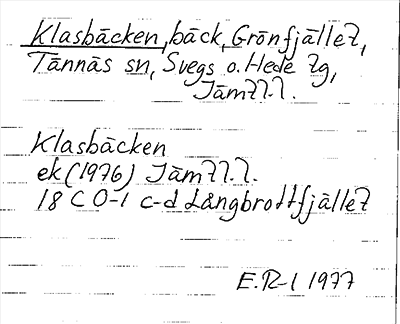 Klasbäcken, bäck, Grönfjället,
Tännäs sn, Svegs o. Hede tg,
Jämtl.l.
Klasbäcken
ek (1976) Jämtl.l.
18 C 0-1 c-d Långbrottfjället
E.R-l 1977